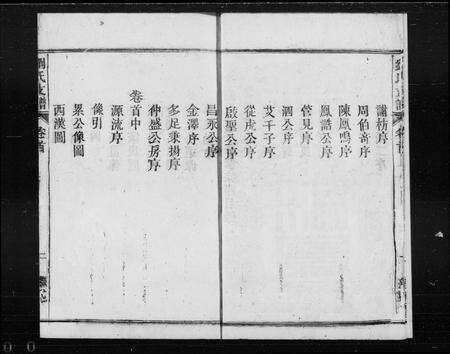 謝枋序
周伯琦序
陳鳳鳴序
鳳誥公序
管見序
泗公序
艾千子序
從虎公序
啟聖公序
昌永公序
金澤序
多足秉揚序
仲盛公房序
卷首中
源流序
像引
累公像圖
西漢圖
劉氏支譜
卷首